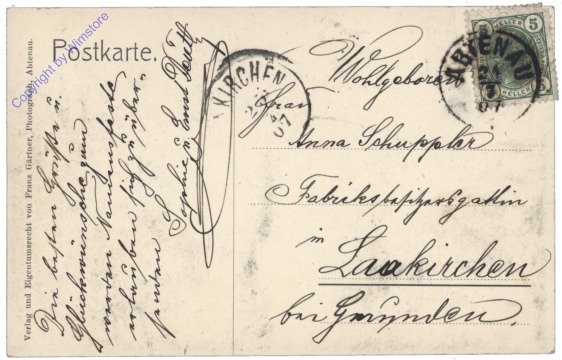 Copyright by Wimstore
Verlag und Eigentumsrecht von Franz Gärtner, Photograph, Abtenau.
Postkarte.
Die besten Grüße u.
Glückwünsche zum
werten Namensfeste
erlauben sich zu über-
senden
Sophie u. Ernst
KIRCHEN
07
ABTENAU
24
07
5
HELLER
Wohlgeboren
Frau
Anna Schuppler
Fabriksbesitzersgattin
in
Laakirchen
bei Gmunden.